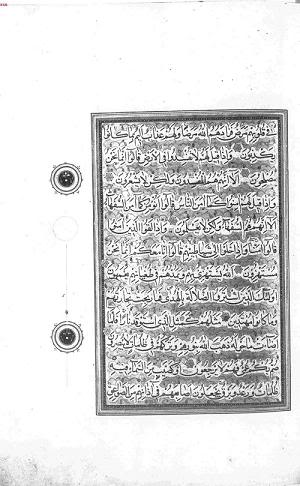 في قلوبهم مرض فزادهم الله مرضا ولهم عذاب اليم بما كانوا
يكذبون واذا قيل لهم لا تفسدوا في الارض قالوا انما نحن
مصلحون الا انهم هم المفسدون ولكن لا يشعرون
واذا قيل لهم امنوا كما امن الناس قالوا انؤمن كما امن السفهاء
الا انهم هم السفهاء ولكن لا يعلمون واذا لقوا الذين امنوا
قالوا امنا واذا خلوا الى شياطينهم قالوا انا معكم انما نحن
مستهزؤن الله يستهزئ بهم ويمدهم في طغيانهم يعمهون
اولئك الذين اشتروا الضلالة بالهدى فما ربحت تجارتهم
وما كانوا مهتدين مثلهم كمثل الذي استوقد نارا فلما
اضاءت ما حوله ذهب الله بنورهم وتركهم في ظلمات لا يبصرون
صم بكم عمي فهم لا يرجعون او كصيب من السماء فيه
ظلمات ورعد وبرق يجعلون اصابعهم في اذانهم من الصواعق